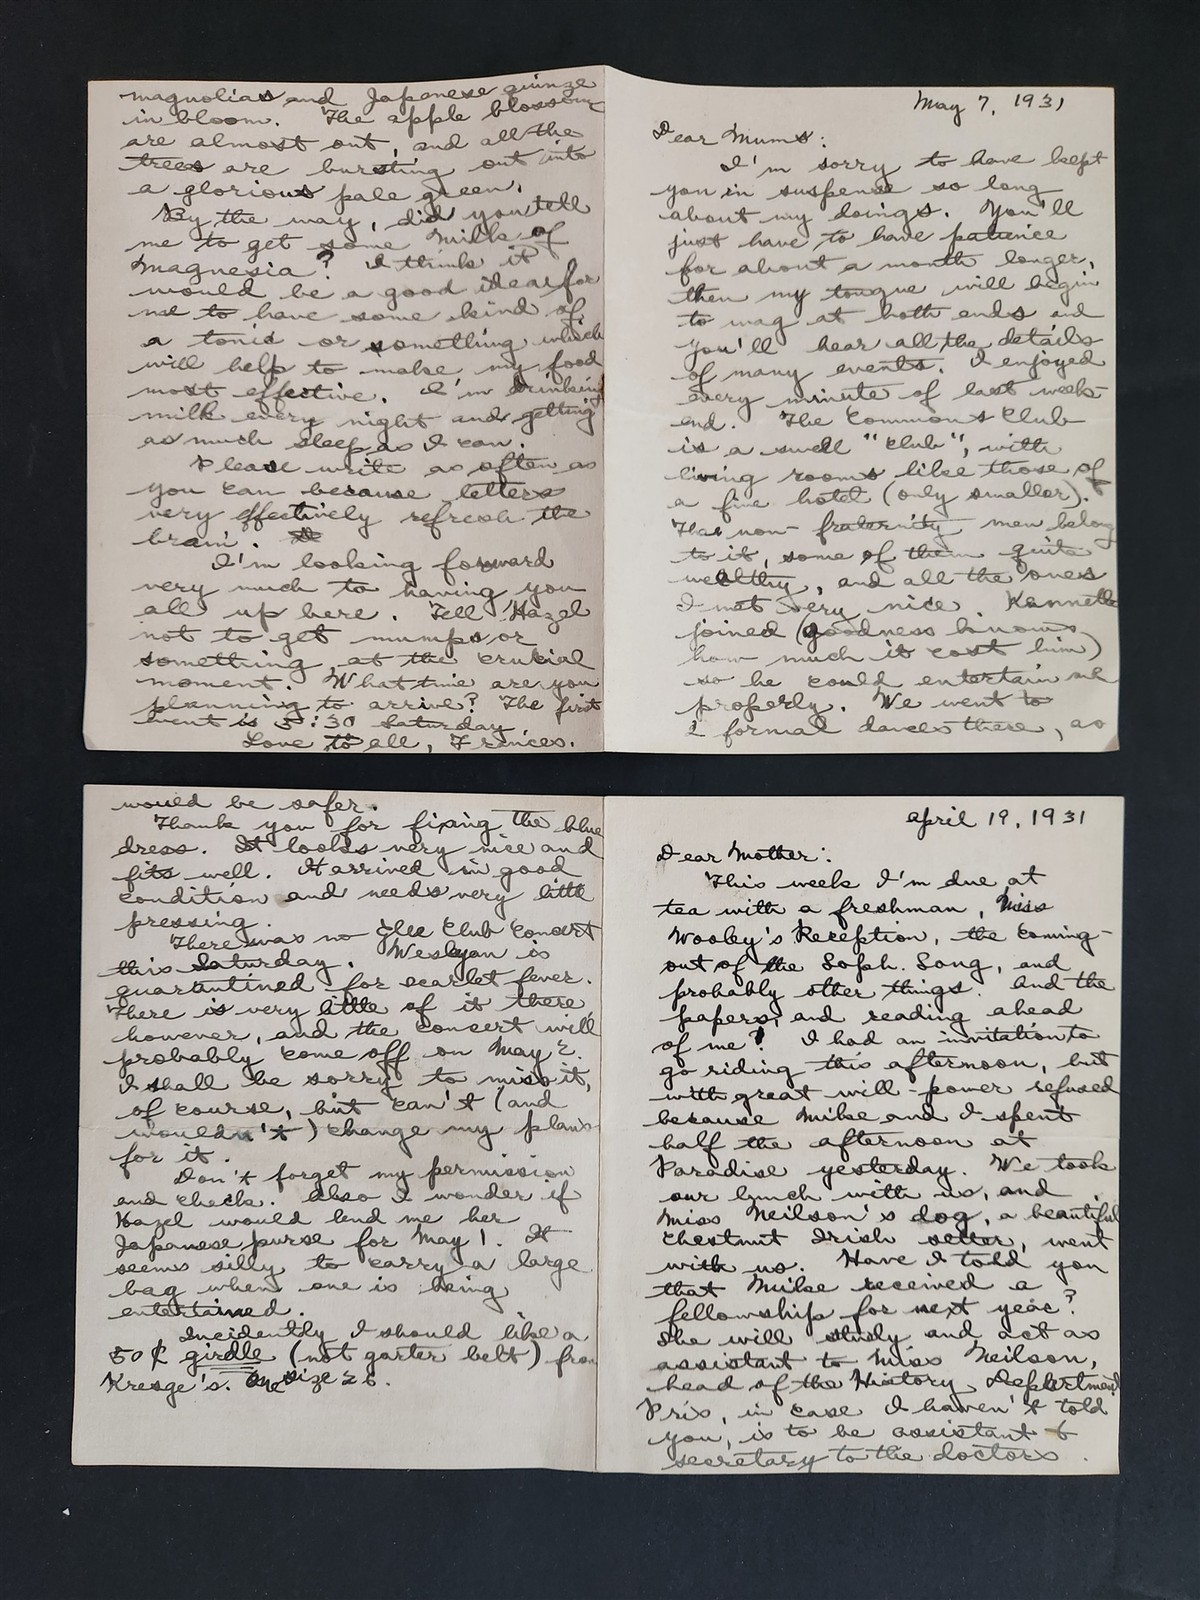 magnolias and Japanese quinze
in bloom. The apple blossoms
are almost out, and all the
trees are bursting out into
a glorious pale green.
By the way, did you tell
me to get some Milk of
Magnesia? I think it
would be a good idea for
me to have some kind of
a tonic or something which
will help to make my food
most effective. I'm drinking
milk every night and getting
as much sleep as I can.
Please write as often as
you can because letters
very effectively refresh the
brain.
I'm looking forward
very much to having you
all up here. Tell Hazel
not to get mumps or
something at the crukial
moment. What time are you
planning to arrive? The first
event is 5:30 Saturday
Love to all, Frances.
May 7, 1931
Dear Mums:
I'm sorry to have kept
you in suspense so long
about my doings. You'll
just have to have patience
for about a month longer,
then my tongue will begin
to wag at both ends and
you'll hear all the details
of many events. I enjoyed
every minute of last week-
end. The Commons Club
is a swell "club", with
living rooms like those of
a fine hotel (only smaller).
The non-fraternity men belong
to it, some of them quite
wealthy, and all the ones
I met very nice. Kenneth
joined (goodness knows
how much it cost him)
so he could entertain me
properly. We went to
2 formal dances there, as
would be safer.
Thank you for fixing the blue
dress. It looks very nice and
fits well. It arrived in good
condition and needs very little
pressing.
There was no Glee Club Concert
this Saturday. Weslyan is
quarantined for scarlet fever.
There is very little of it there,
however, and the concert will
probably come off on May 2.
I shall be sorry to miss it,
of course, but can't (and
wouldn't) change my plans
for it.
Don't forget my permission
and check. Also I wonder if
Hazel would lend me her
Japanese purse for May 1. It
seems silly to carry a large
bag when one is being
entertained.
Incidently I should like a
50¢ girdle (not garter belt) from
Kresge's. size 26.
April 19, 1931
Dear Mother:
This week I'm due at
tea with a freshman, Miss
Wooley's Reception, the coming-
out of the Soph. Song, and
probably other things. And the
papers, and reading ahead
of me! I had an invitation to
go riding this afternoon, but
with great will-power refused
because Mike and I spent
half the afternoon at
Paradise yesterday. We took
our lunch with us, and
Miss Neilson's dog, a beautiful
chestnut Irish setter, went
with us. Have I told you
that Mike received a
fellowship for next year?
She will study and act as
assistant to Miss Neilson,
head of the History Department
Pris, in case I haven't told
you, is to be assistant &
secretary to the doctors.